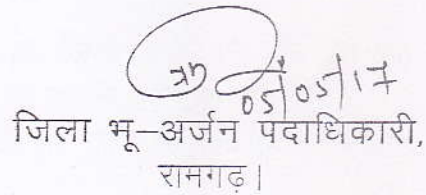 05/05/17
जिला भू-अर्जन पदाधिकारी,
रामगढ़।